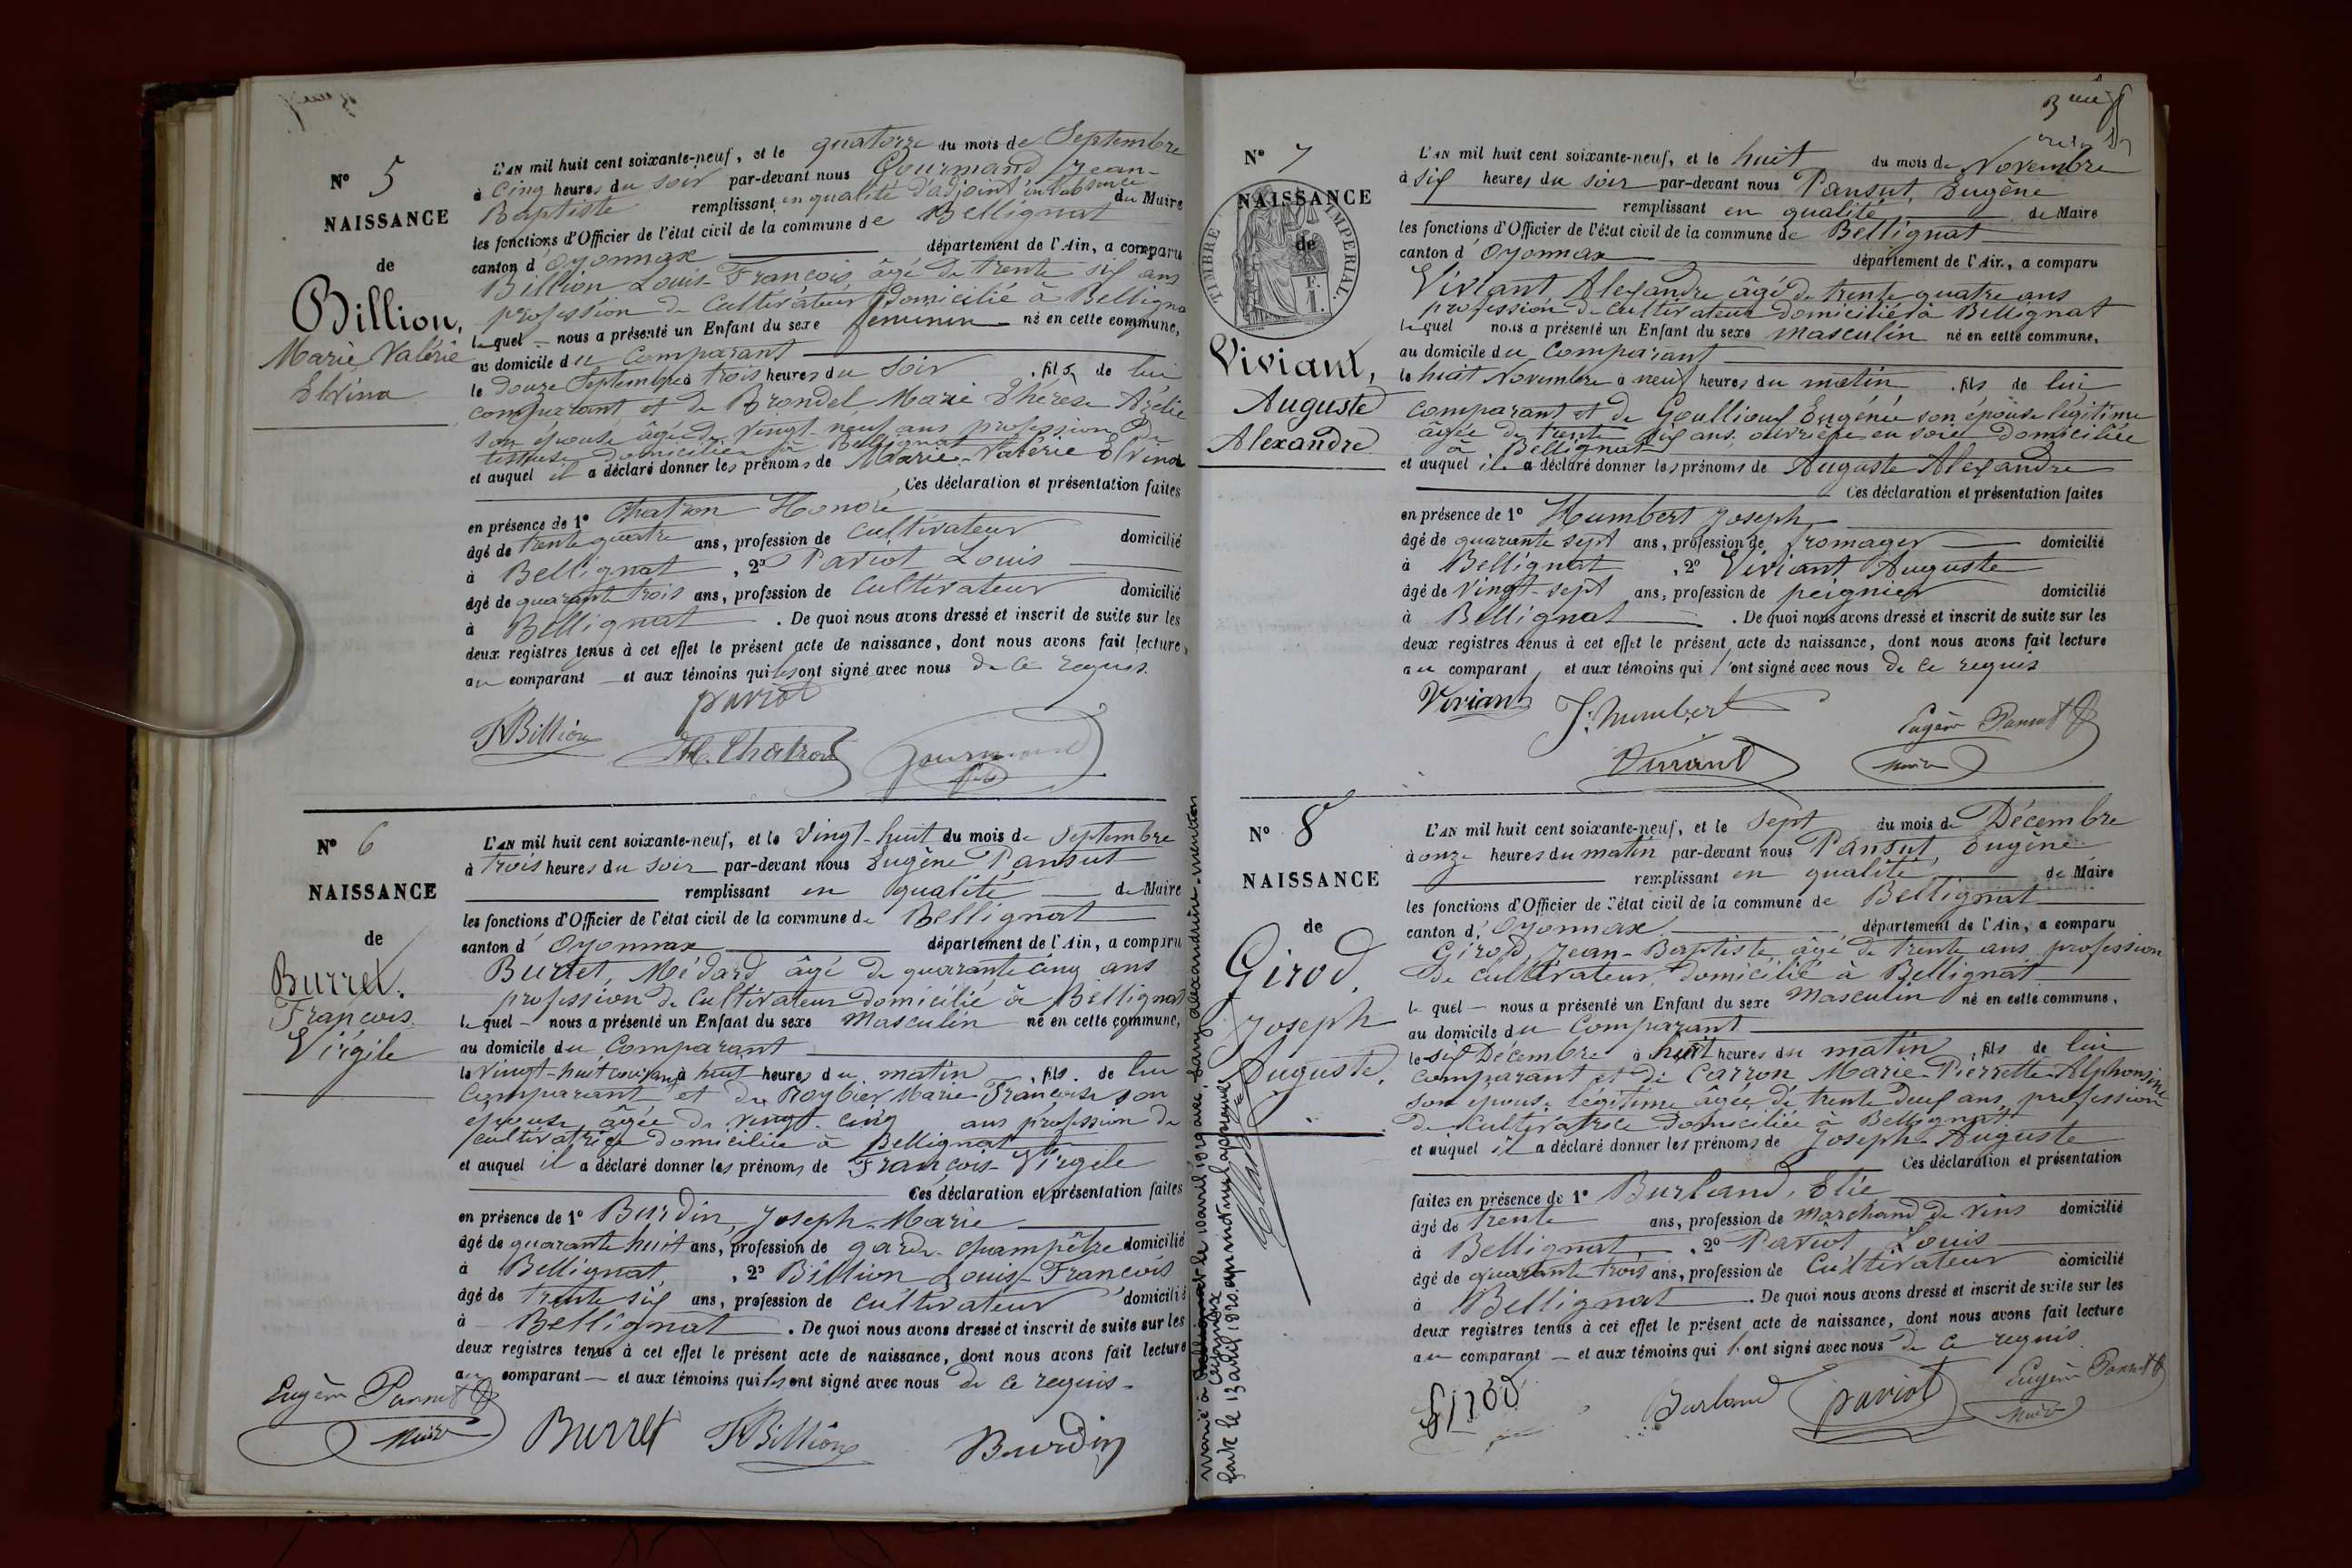 N° 5
NAISSANCE
de
Billion,
Marie Valérie
Elvina
L'AN mil huit cent soixante-neuf, et le quatorze du mois de Septembre
à cinq heures du soir par-devant nous Gourmand Jean-
Baptiste remplissant en qualité d'adjoint en l'absence du Maire
les fonctions d'Officier de l'état civil de la commune de Bellignat
canton d'Oyonnax département de l'Ain, a comparu
Billion Louis-François, âgé de trente six ans
profession de cultivateur domicilié à Bellignat
lequel nous a présenté un Enfant du sexe féminin né en cette commune,
au domicile du comparant
le douze Septembre à trois heures du soir, fils de lui
comparant et de Brondel Marie Thérèse Azélie
son épouse âgée de vingt-neuf ans profession de
tisseuse domiciliée à Bellignat
et auquel il a déclaré donner les prénoms de Marie-Valérie Elvina
Ces déclaration et présentation faites
en présence de 1° Chatron Honoré
âgé de trente quatre ans, profession de cultivateur domicilié
à Bellignat, 2° Paviot Louis
âgé de quarante trois ans, profession de cultivateur domicilié
à Bellignat. De quoi nous avons dressé et inscrit de suite sur les
deux registres tenus à cet effet le présent acte de naissance, dont nous avons fait lecture,
au comparant et aux témoins qui les ont signé avec nous de ce requis.
paviot
Billion H. Chatron Gourmand
N° 6
NAISSANCE
de
Burret.
François
Virgile
L'AN mil huit cent soixante-neuf, et le vingt-huit du mois de Septembre
à trois heures du soir par-devant nous Eugène Pansut
remplissant en qualité de Maire
les fonctions d'Officier de l'état civil de la commune de Bellignat
canton d'Oyonnax département de l'Ain, a comparu
Burret, Médard âgé de quarante cinq ans
profession de cultivateur domicilié à Bellignat
lequel nous a présenté un Enfant du sexe Masculin né en cette commune,
au domicile du comparant
le vingt-huit courant à huit heures du matin, fils de lui
comparant et de Roybier Marie-Françoise son
épouse âgée de vingt-cinq ans profession de
cultivatrice domiciliée à Bellignat
et auquel il a déclaré donner les prénoms de François-Virgile
Ces déclaration et présentation faites
en présence de 1° Burdin, Joseph-Marie
âgé de quarante huit ans, profession de garde-champêtre domicilié
à Bellignat, 2° Billion Louis-François
âgé de trente six ans, profession de cultivateur domicilié
à Bellignat. De quoi nous avons dressé et inscrit de suite sur les
deux registres tenus à cet effet le présent acte de naissance, dont nous avons fait lecture
au comparant et aux témoins qui les ont signé avec nous de ce requis.
Eugène Pansut
Maire Burret Billion Bourdin
N° 7
NAISSANCE
de
TIMBRE IMPERIAL.
Viviant,
Auguste
Alexandre
L'AN mil huit cent soixante-neuf, et le huit du mois de Novembre
à six heures du soir par-devant nous Pansut, Eugène
remplissant en qualité de Maire
les fonctions d'Officier de l'état civil de la commune de Bellignat
canton d'Oyonnax département de l'Ain, a comparu
Viviant Alexandre âgé de trente quatre ans
profession de cultivateur domicilié à Bellignat
lequel nous a présenté un Enfant du sexe masculin né en cette commune,
au domicile du comparant
le huit Novembre à neuf heures du matin, fils de lui
comparant et de Goullioud Eugénie son épouse légitime
âgée de trente six ans, ouvrière en soie domiciliée
à Bellignat
et auquel il a déclaré donner les prénoms de Auguste Alexandre
Ces déclaration et présentation faites
en présence de 1° Humbert Joseph
âgé de quarante sept ans, profession de fromager domicilié
à Bellignat, 2° Viviant Auguste
âgé de vingt-sept ans, profession de peignier domicilié
à Bellignat. De quoi nous avons dressé et inscrit de suite sur les
deux registres tenus à cet effet le présent acte de naissance, dont nous avons fait lecture
au comparant, et aux témoins qui l'ont signé avec nous de ce requis
Viviant J. humbert Eugène Pansut
Viviant Maire
N° 8
NAISSANCE
de
Girod,
Joseph
Auguste.
L'AN mil huit cent soixante-neuf, et le sept du mois de Décembre
à onze heures du matin par-devant nous Pansut, Eugène
remplissant en qualité de Maire
les fonctions d'Officier de l'état civil de la commune de Bellignat
canton d'Oyonnax. département de l'Ain, a comparu
Girod, Jean-Baptiste, âgé de trente ans profession
de cultivateur, domicilié à Bellignat
lequel nous a présenté un Enfant du sexe Masculin né en cette commune,
au domicile du comparant
le six Décembre à huit heures du matin, fils de lui
comparant et de Carron Marie-Pierrette-Alphonsine
son épouse légitime âgée de trente deux ans profession
de cultivatrice domiciliée à Bellignat
et auquel il a déclaré donner les prénoms de Joseph-Auguste
Ces déclaration et présentation
faites en présence de 1° Burland, Elie
âgé de trente ans, profession de marchand de vins domicilié
à Bellignat, 2° Paviot Louis
âgé de quarante trois ans, profession de cultivateur domicilié
à Bellignat. De quoi nous avons dressé et inscrit de suite sur les
deux registres tenus à cet effet le présent acte de naissance, dont nous avons fait lecture
au comparant et aux témoins qui l'ont signé avec nous de ce requis.
Girod Burland paviot Eugène Pansut
Maire